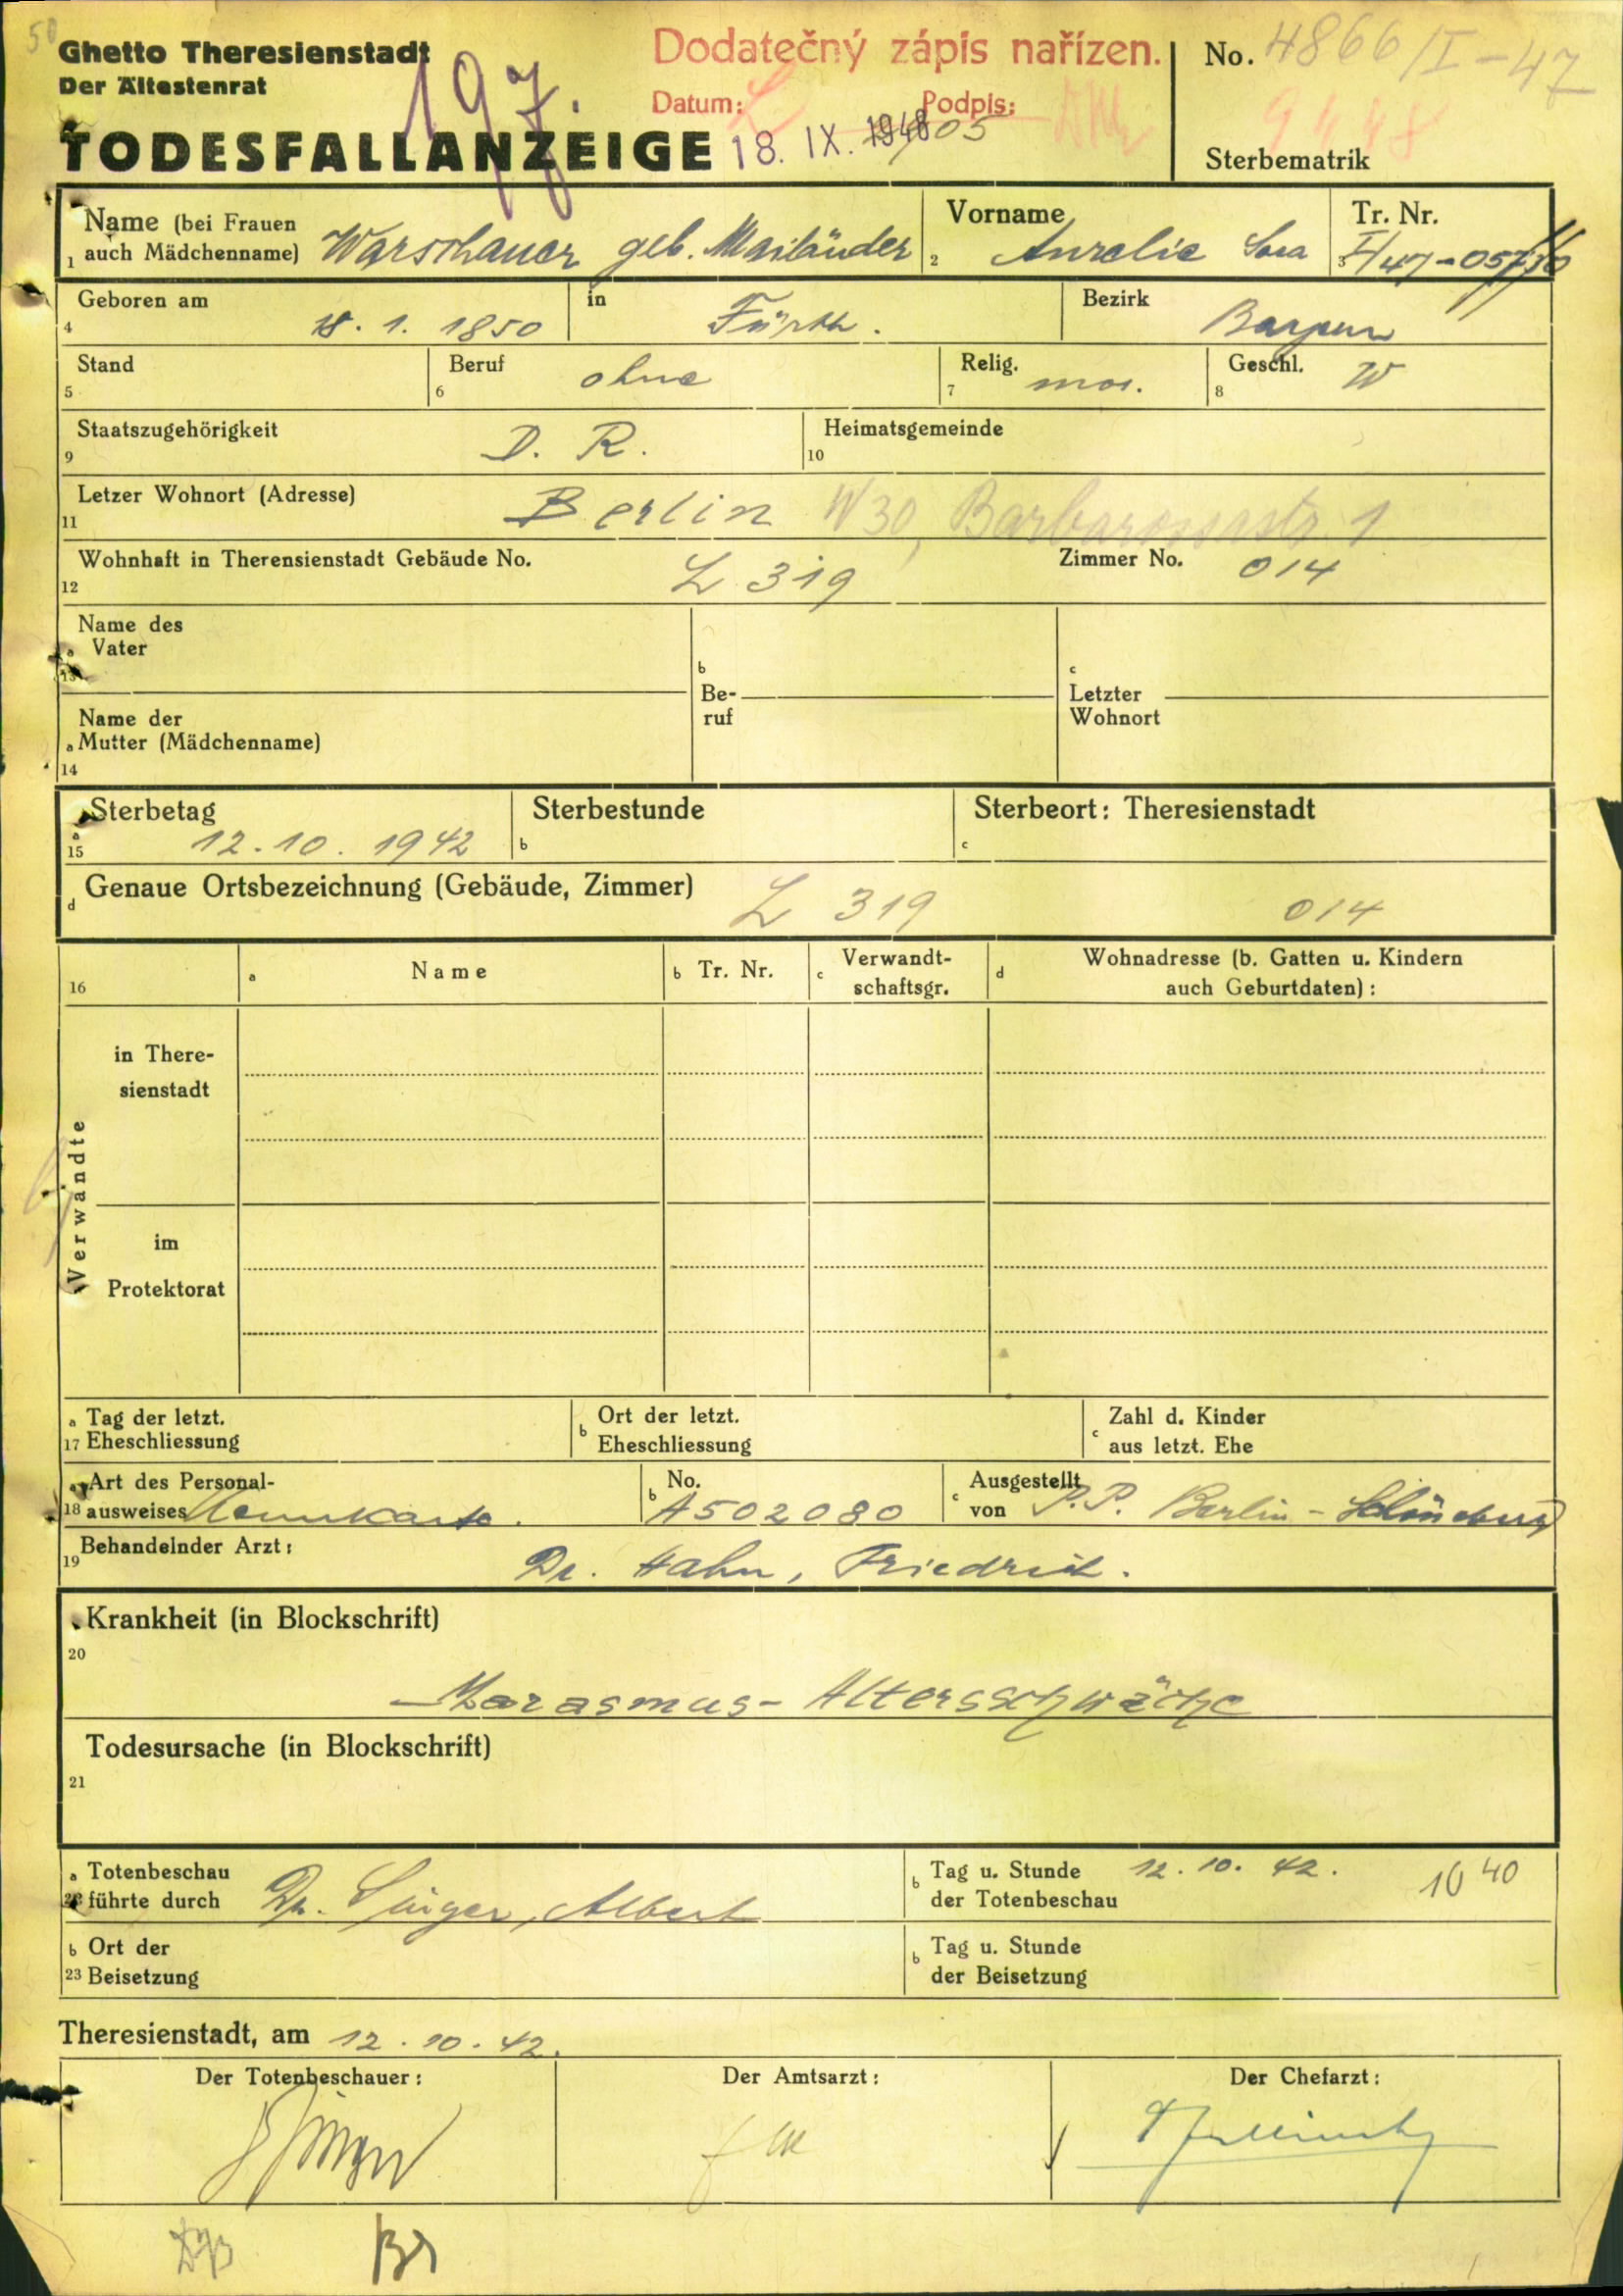 Ghetto Theresienstadt
Der Ältestenrat
TODESFALLANZEIGE
197.
Dodatečný zápis nařízen.
Datum: Podpis:
18. IX. 1948
No. 4866/I-47
9448
Sterbematrik
Name (bei Frauen
1 auch Mädchenname) Warschauer geb. Mailänder
2 Vorname Aurelie Sara
3 Tr. Nr. I/47-05730
4 Geboren am 18. 1. 1850
in Fürth.
Bezirk Bayern
5 Stand
6 Beruf ohne
7 Relig. mos.
8 Geschl. W
9 Staatszugehörigkeit D. R.
10 Heimatsgemeinde
11 Letzer Wohnort (Adresse) Berlin W30, Barbarossastr. 1
12 Wohnhaft in Therensienstadt Gebäude No. L 319 Zimmer No. 014
Name des
a Vater
13
b
Be-
ruf
c
Letzter
Wohnort
Name der
a Mutter (Mädchenname)
14
a Sterbetag
15 12.10. 1942
b Sterbestunde
c Sterbeort: Theresienstadt
d Genaue Ortsbezeichnung (Gebäude, Zimmer) L 319 014
16
a Name
b Tr. Nr.
c Verwandt-
schaftsgr.
d Wohnadresse (b. Gatten u. Kindern
auch Geburtdaten):
Verwandte
in There-
sienstadt
im
Protektorat
a Tag der letzt.
17 Eheschliessung
b Ort der letzt.
Eheschliessung
c Zahl d. Kinder
aus letzt. Ehe
a Art des Personal-
18 ausweises Kennkarte.
b No.
A502080
c Ausgestellt
von P.P. Berlin-Schöneberg
19 Behandelnder Arzt: Dr. Hahn, Friedrich.
Krankheit (in Blockschrift)
20
Marasmus- Altersschwäche
Todesursache (in Blockschrift)
21
a Totenbeschau
22 führte durch Dr. Singer, Albert
b Tag u. Stunde 12. 10. 42. 10 40
der Totenbeschau
b Ort der
23 Beisetzung
b Tag u. Stunde
der Beisetzung
Theresienstadt, am 12. 10. 42.
Der Totenbeschauer:
Der Amtsarzt:
Der Chefarzt: